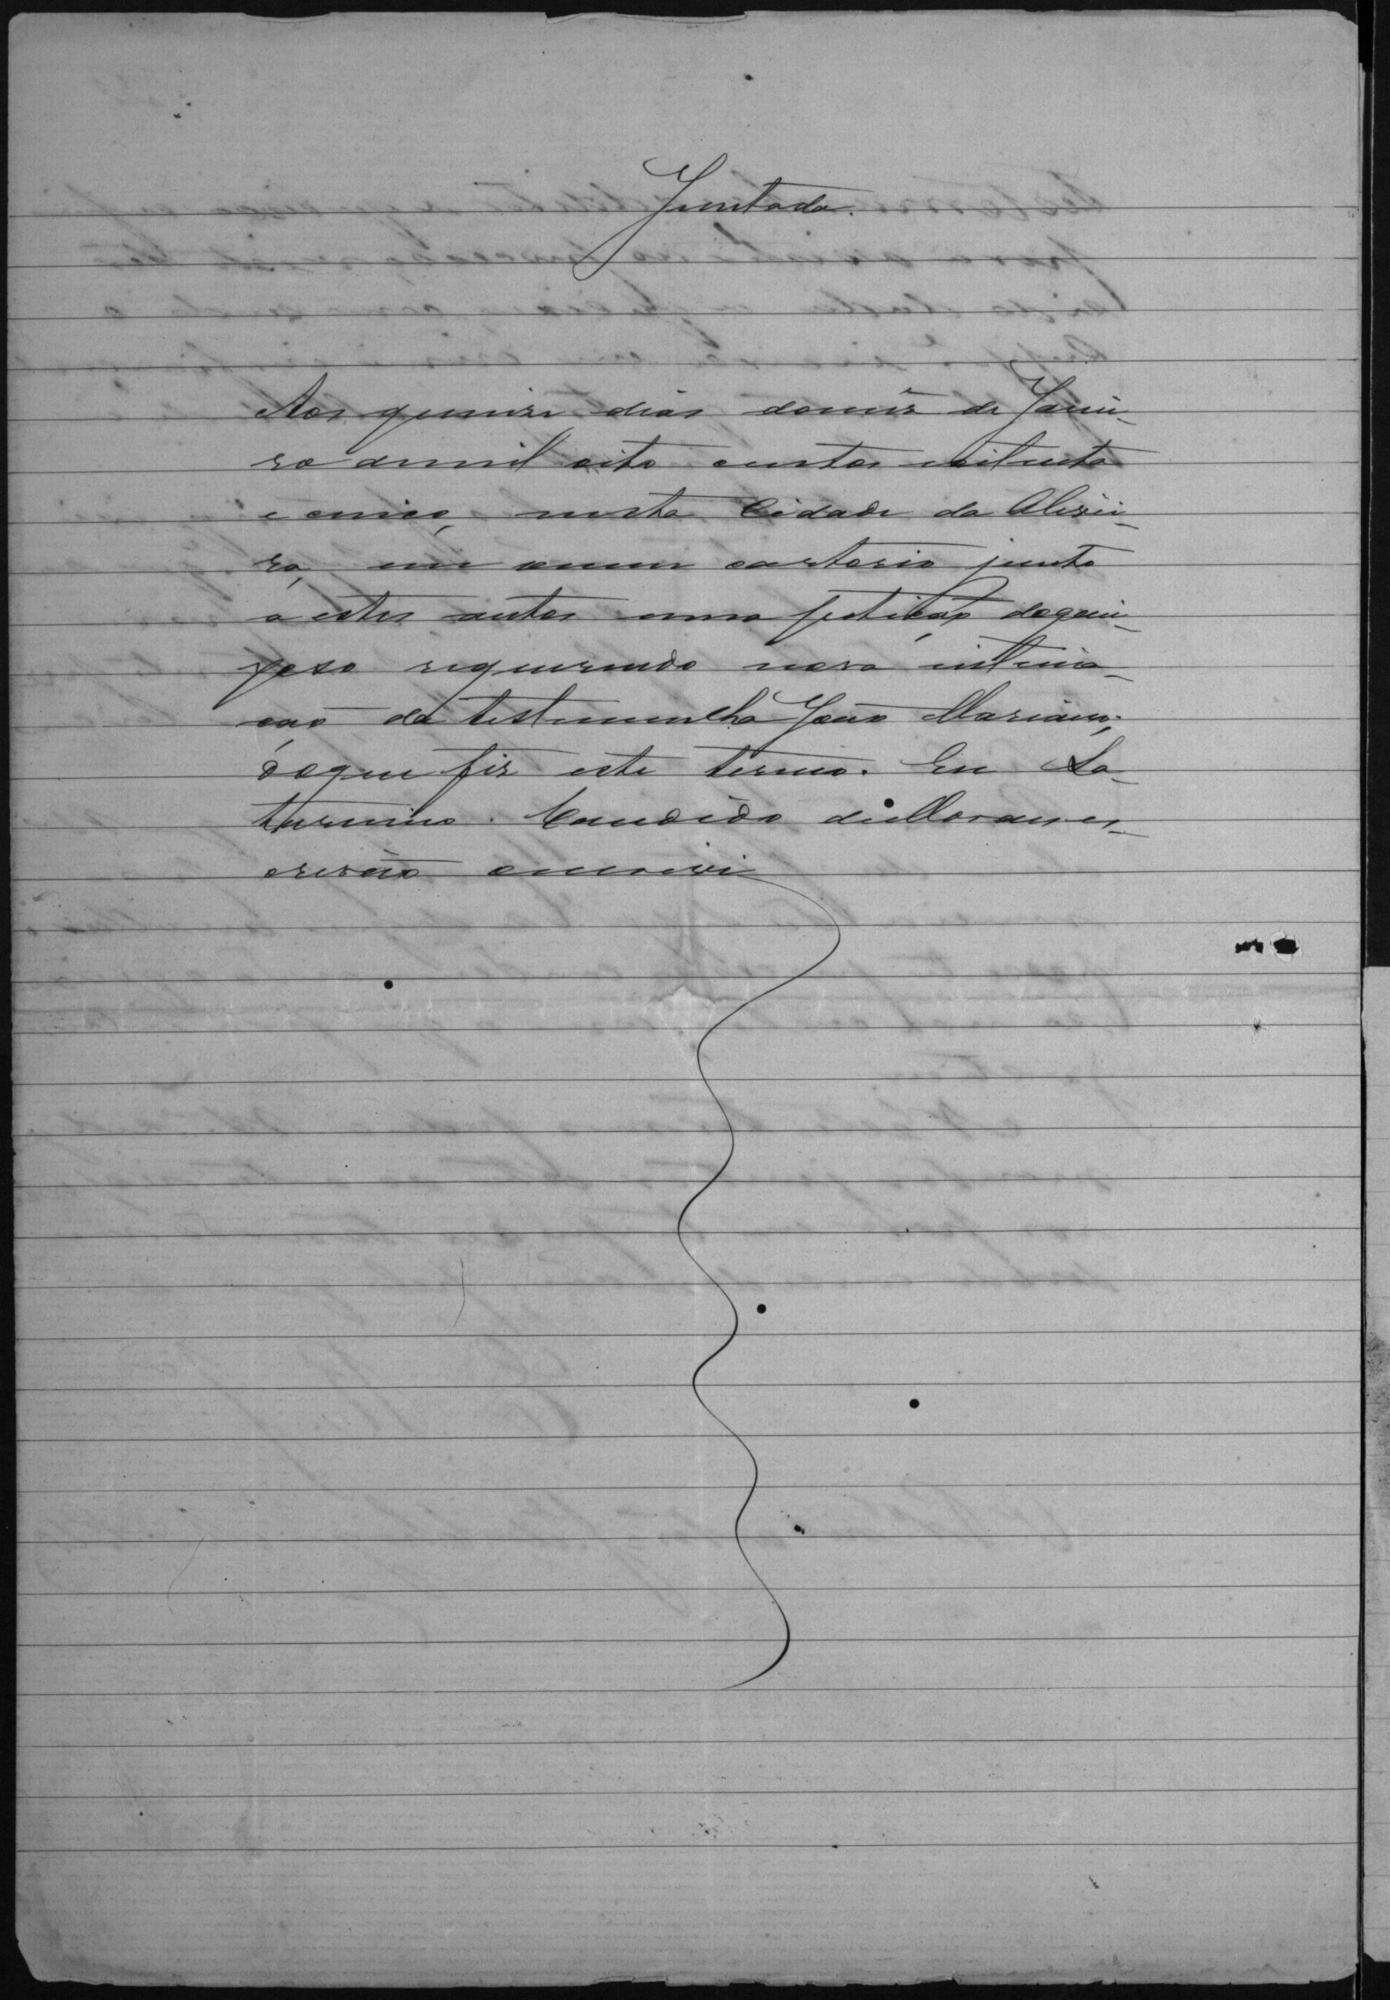 Juntada.
Aos quinse dias do mês de Janei-
ro de mil oito centos oitenta
e cinco, nesta Cidade da Limei-
ra, em o meu cartorio junto
a estes autos uma petição do quei-
xoso requerendo nova intima-
ção da testemunha João Mariano;
do que fiz este termo. Eu Sa-
turnino Candido de Moraes es-
crivão escrevi